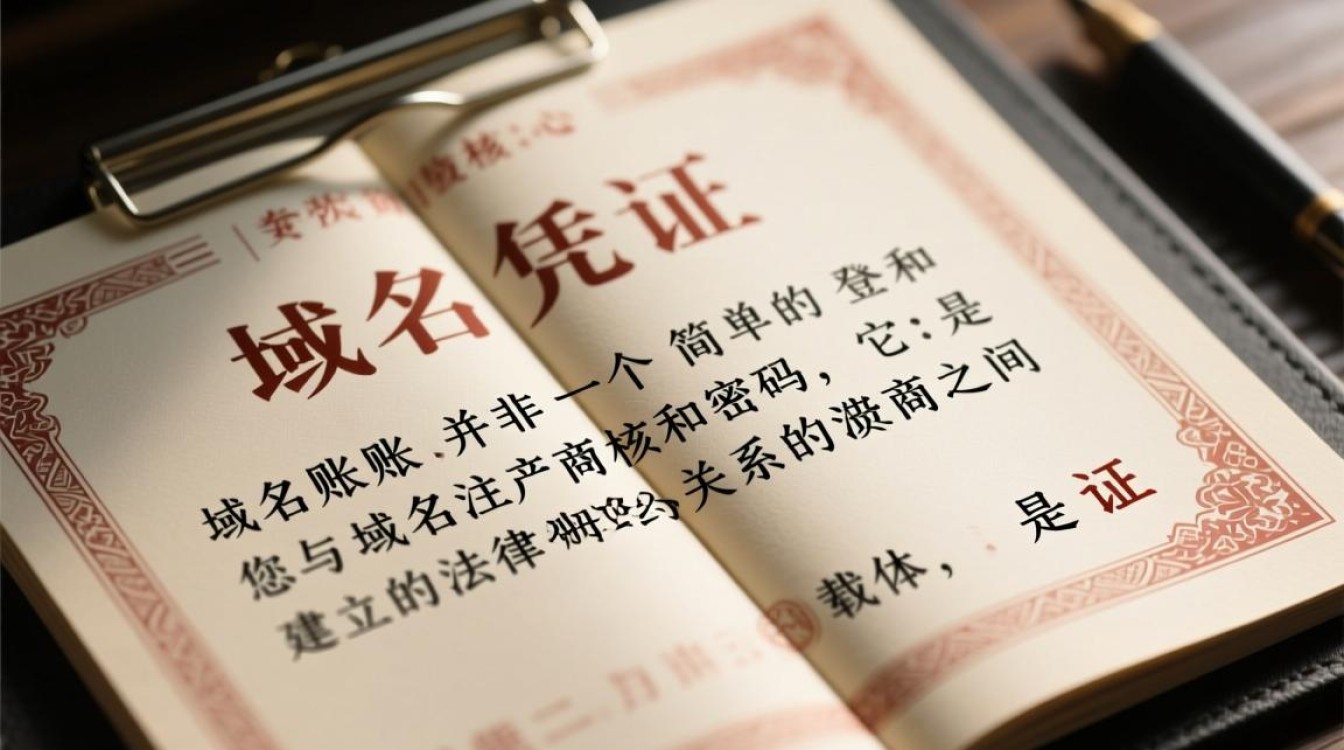 核心
域名凭证
域名账账 并非一个 简单的 登和
您与域名注产商核和密码，它：是
建立的法律 关系的 商商之间
载体， 是证